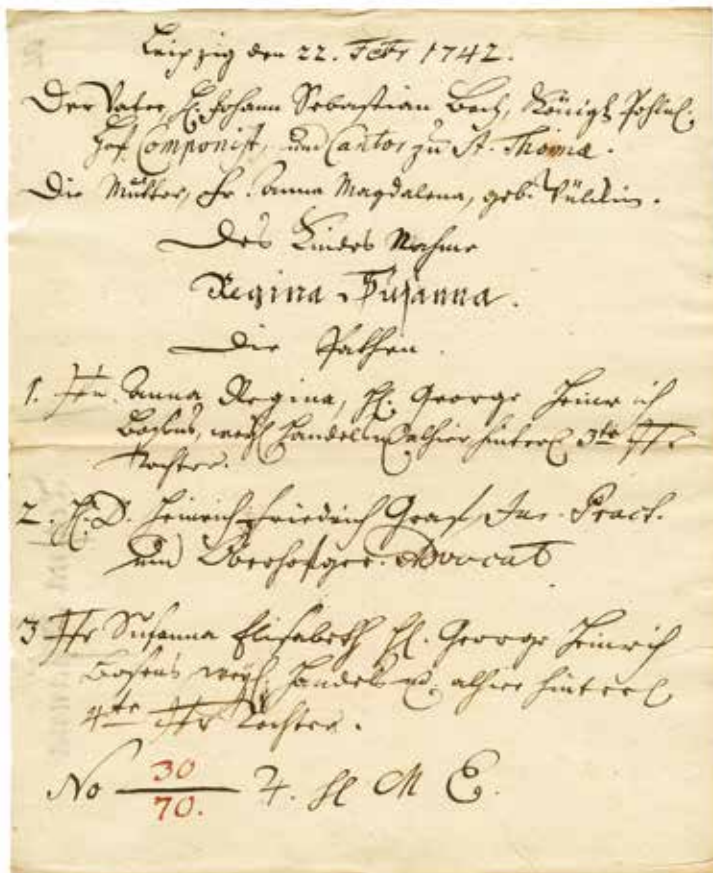 Leipzig den 22. Febr 1742.
Der Vater, H. Johann Sebastian Bach, Königl. Pohln.
Hof Componist, und Cantor zu St. Thomæ.
Die Mutter, Fr. Anna Magdalena, geb. Wülckin.
Des Kindes Nahme
Regina Susanna.
Die Pathen.
1. Jfr. Anna Regina, H. George Heinrich
Bosens, weyl. Handelsm. alhier hinterl. 3te Jfr.
Tochter.
2. H. D. Heinrich Friedrich Graf Jur. Pract.
und Oberhofger. Advocat
3 Jfr Susanna Elisabeth H. George Heinrich
Bosens weyl. Handelsm. alhier hinterl
4te Jfr Tochter.
No 30
70. M E.